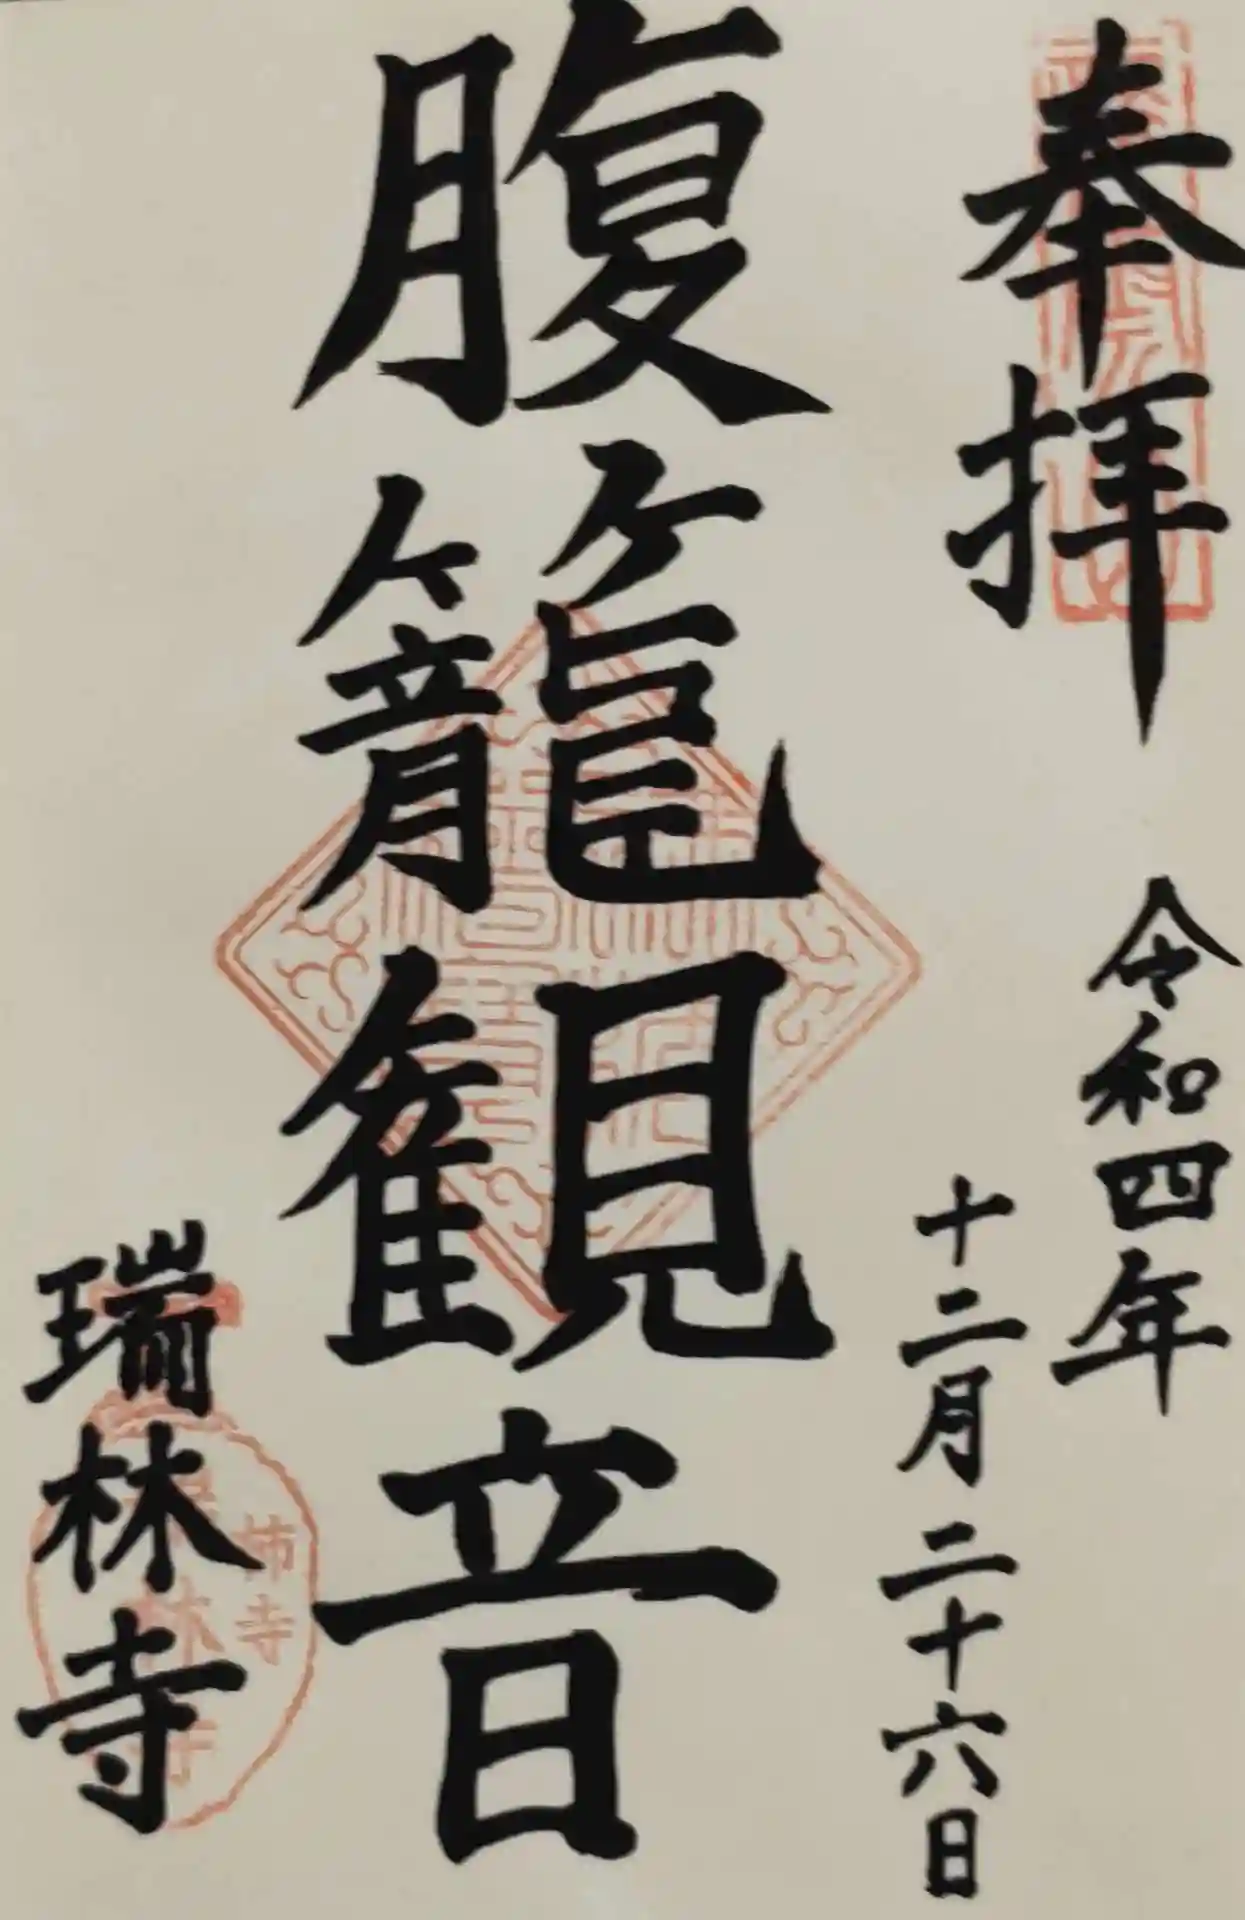 奉拝
令和四年
十二月二十六日
腹籠観音
瑞林寺
柿寺